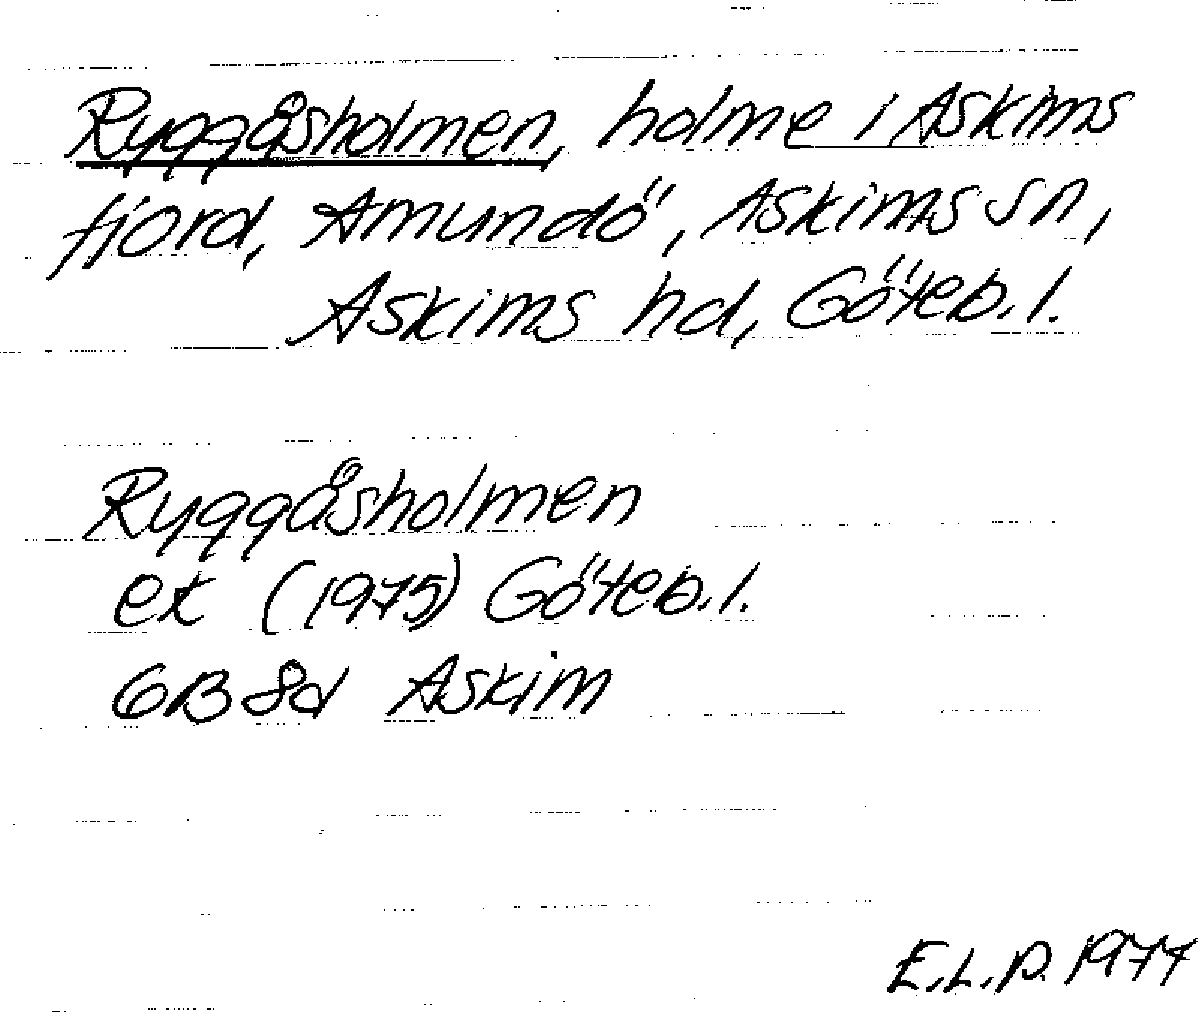 Ryggåsholmen, holme i Askims
fjord, Amundö, Askims sn,
Askims hd, Göteb. l.
Ryggåsholmen
ek (1975) Göteb. l.
GB 8d Askim
E.L.P. 1977